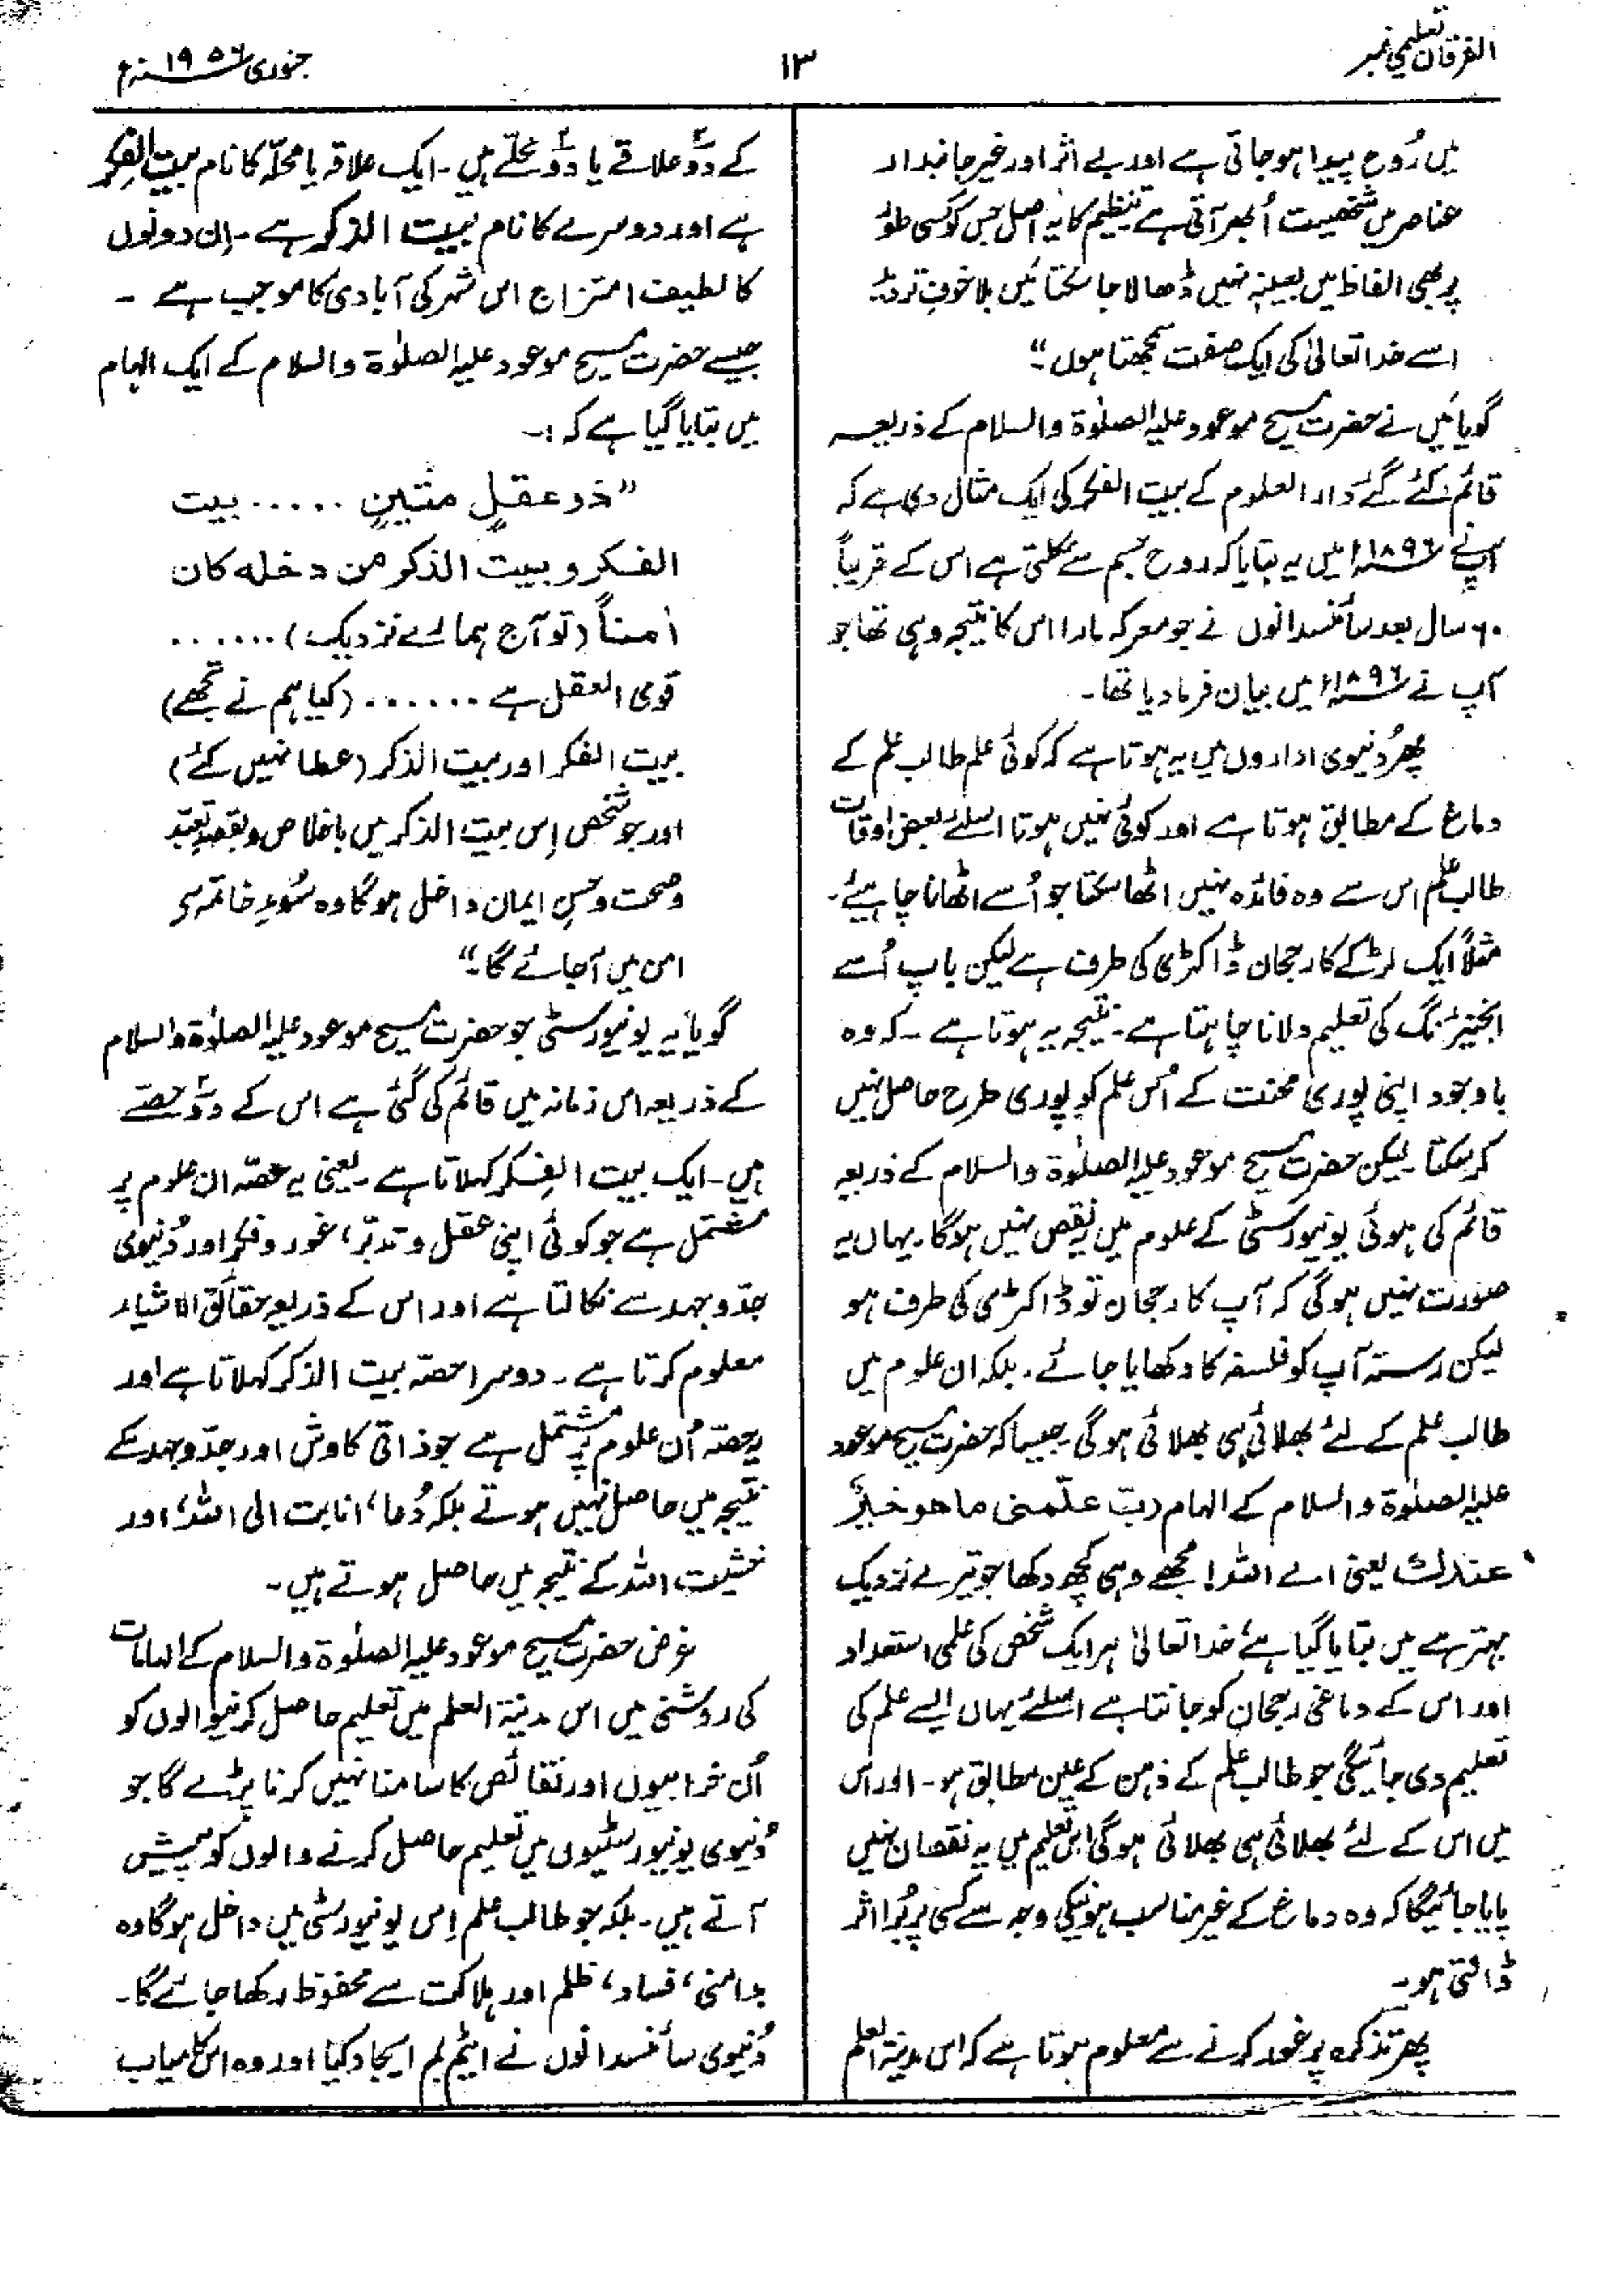 الفرقان تعلیمی نمبر
۱۳
جنوری ۱۹۵۶ء
میں رُوح پیدا ہو جاتی ہے اور بے اثر اور غیر جانبدار
عناصر میں شخصیت اُبھر آتی ہے تنظیم کا یہ اصل جس کو کسی طور
پر بھی الفاظ میں بعینہٖ نہیں ڈھالا جا سکتا مَیں بلا خوفِ تردید
اسے خدا تعالیٰ کی ایک صفت سمجھتا ہوں“
گویا مَیں نے حضرت مسیح موعود علیہ الصلوٰۃ والسلام کے ذریعہ
قائم کئے گئے دار العلوم کے بیت الفکر کی ایک مثال دی ہے کہ
آپ نے ۱۸۹۶ء میں یہ بتایا کہ روح جسم سے نکلتی ہے اس کے قریباً
۶۰ سال بعد سائنسدانوں نے جو معرکہ مارا اس کا نتیجہ وہی تھا جو
آپ نے ۱۸۹۶ء میں بیان فرما دیا تھا۔
پھر دُنیوی اداروں میں یہ ہوتا ہے کہ کوئی علم طالب علم کے
دماغ کے مطابق ہوتا ہے اور کوئی نہیں ہوتا اسلئے بعض اوقات
طالب علم اس سے وہ فائدہ نہیں اٹھا سکتا جو اُسے اٹھانا چاہیئے۔
مثلاً ایک لڑکے کا رجحان ڈاکٹری کی طرف ہے لیکن باپ اُسے
انجنیئرنگ کی تعلیم دلانا چاہتا ہے۔ نتیجہ یہ ہوتا ہے۔ کہ وہ
باوجود اپنی پوری محنت کے اُس علم کو پوری طرح حاصل نہیں
کر سکتا۔ لیکن حضرت مسیح موعود علیہ الصلوٰۃ والسلام کے ذریعہ
قائم کی ہوئی یونیورسٹی کے علوم میں یہ نقص نہیں ہوگا۔ یہاں یہ
صورت نہیں ہوگی کہ آپ کا رجحان تو ڈاکٹری کی طرف ہو
لیکن رستہ آپ کو فلسفہ کا دکھایا جائے۔ بلکہ ان علوم میں
طالب علم کے لئے بھلائی ہی بھلائی ہوگی۔ جیسا کہ حضرت مسیح موعود
علیہ الصلوٰۃ والسلام کے الہام ربّ علّمنی ما ھو خیرٌ
عندك یعنی اے اللہ! مجھے وہی کچھ دکھا جو تیرے نزدیک
بہتر ہے میں بتایا گیا ہے، خدا تعالیٰ ہر ایک شخص کی علمی استعداد
اور اس کے دماغی رجحان کو جانتا ہے اسلئے یہاں ایسے علم کی
تعلیم دی جائیگی جو طالب علم کے ذہن کے عین مطابق ہو۔ اور اس
میں اس کے لئے بھلائی ہی بھلائی ہوگی اس تعلیم میں یہ نقصان نہیں
پایا جائیگا کہ وہ دماغ کے غیر مناسب ہونیکی وجہ سے کسی پر بُرا اثر
ڈالتی ہو۔
پھر تذکرہ پر غور کرنے سے معلوم ہوتا ہے کہ اس مدینۃ العلم
کے دوؔ علاقے یا دوؔ محلّے ہیں۔ ایک علاقہ یا محلّہ کا نام بیت الفِکر
ہے اور دوسرے کا نام بیت الذکر ہے۔ اِن دونوں
کا لطیف امتزاج اس شہر کی آبادی کا موجب ہے۔
جیسے حضرت مسیح موعود علیہ الصلوٰۃ والسلام کے ایک الہام
میں بتایا گیا ہے کہ :۔
”ذو عقلٍ متینٍ ..... بیت
الفکر و بیت الذکر من دخلہ کان
اٰمناً (تو آج ہمارے نزدیک) ......
قوی العقل ہے ...... (کیا ہم نے تجھے)
بیت الفکر اور بیت الذکر (عطا نہیں کئے)
اور جو شخص اِس بیت الذکر میں باخلاص و بقصدِ تعبّد
و صحت و حسنِ ایمان داخل ہوگا وہ سُوءِ خاتمہ سے
امن میں آجائے گا۔“
گویا یہ یونیورسٹی جو حضرت مسیح موعود علیہ الصلوٰۃ والسلام
کے ذریعہ اس زمانہ میں قائم کی گئی ہے اس کے دوؔ حصّے
ہیں۔ ایک بیت الفِکر کہلاتا ہے۔ یعنی یہ حصّہ ان علوم پر
مشتمل ہے جو کوئی اپنی عقل و تدبّر، غور و فکر اور دُنیوی
جدّ و جہد سے نکالتا ہے اور اس کے ذریعہ حقائق الاشیاء
معلوم کرتا ہے۔ دوسرا حصّہ بیت الذکر کہلاتا ہے اور
یہ حصّہ اُن علوم پر مشتمل ہے جو ذاتی کاوش اور جدّ و جہد کے
نتیجہ میں حاصل نہیں ہوتے بلکہ دُعا، انابت الی اللہ، اور
خشیت اللہ کے نتیجہ میں حاصل ہوتے ہیں۔
غرض حضرت مسیح موعود علیہ الصلوٰۃ والسلام کے الہامات
کی روشنی میں اس مدینۃ العلم میں تعلیم حاصل کرنیوالوں کو
اُن خرابیوں اور نقائص کا سامنا نہیں کرنا پڑے گا جو
دُنیوی یونیورسٹیوں میں تعلیم حاصل کرنے والوں کو پیش
آتے ہیں۔ بلکہ جو طالب علم اِس یونیورسٹی میں داخل ہوگا وہ
بدامنی، فساد، ظلم اور ہلاکت سے محفوظ رکھا جائے گا۔
دُنیوی سائنسدانوں نے ایٹم بم ایجاد کیا اور وہ اس کامیاب